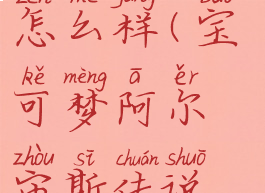 zěn me yàng bǎo
怎么样(宝
kě mèng ā ěr
可梦阿尔
zhòu sī chuán shuō
宙斯传说